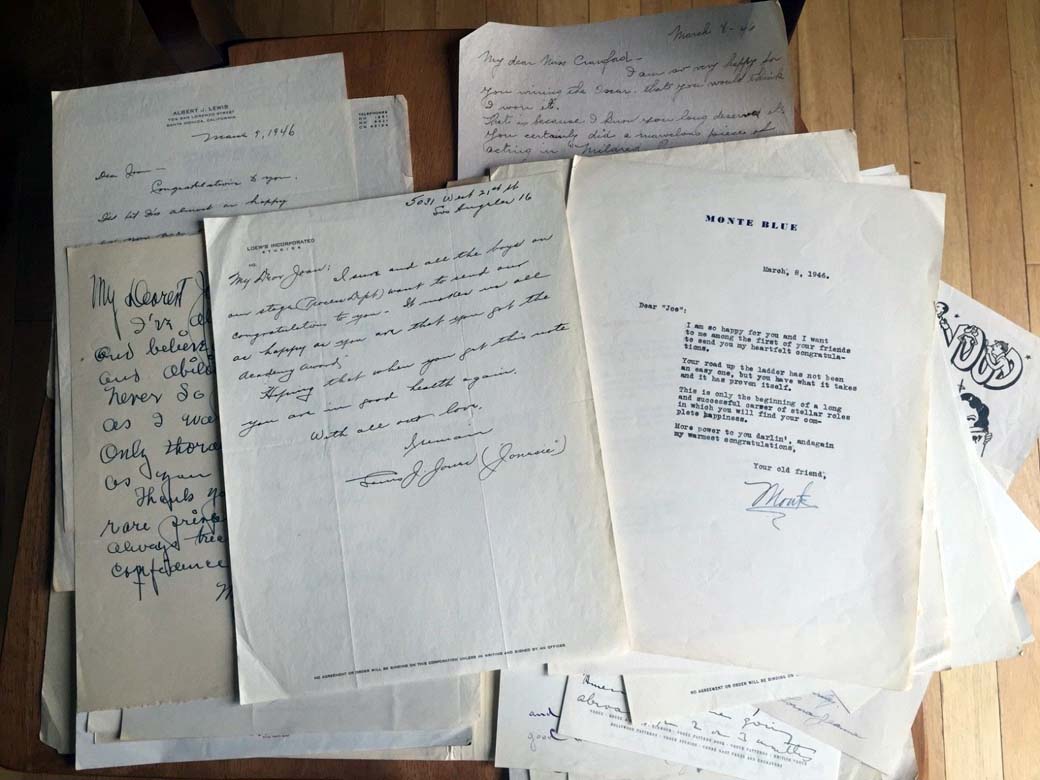 ALBERT J. LEWIS
SANTA MONICA, CALIFORNIA
March 9, 1946
Dear Joan—
Congratulations to you.
almost as happy
TELEPHONES
March 8-46
My dear Miss Crawford—
I am so very happy for
you wining the Oscar. that you would think
I won it.
that is because I know you long deserved it.
You certainly did a marvelous pieces of
acting in "Mildred
My Dearest J
I've al
and believe
and abili
never so
as I was
only thora
as you
Thank yo
rare privi
always trea
confidence
5031 West 21st St
Los Angeles 16
LOEW'S INCORPORATED
STUDIOS
My Dear Joan:
I sure and all the boys on
our stage (Process Dept) want to send our
congratulations to you. It makes us all
as happy as you are that you got the
Academy Award
Hoping that when you get this note
you are in good health again.
With all our love,
J. (Jonesie)
NO AGREEMENT OR ORDER WILL BE BINDING ON THIS CORPORATION UNLESS IN WRITING AND SIGNED BY AN OFFICER.
MONTE BLUE
March, 8, 1946.
Dear "Joe":
I am so happy for you and I want
to me among the first of your friends
to send you my heartfelt congratula-
tions.
Your road up the ladder has not been
an easy one, but you have what it takes
and it has proven itself.
This is only the beginning of a long
and successful career of stellar roles
in which you will find your com-
plete happiness.
More power to you darlin', andagain
my warmest congratulations,
Your old friend,
Monte
NO AGREEMENT OR ORDER WILL BE BINDING ON
and
good
going
2 or 3 months